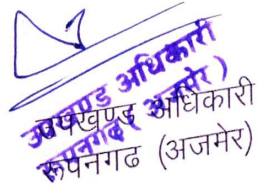 उपखण्ड अधिकारी
रूपनगढ ( अजमेर )
उपखण्ड अधिकारी
रूपनगढ (अजमेर)